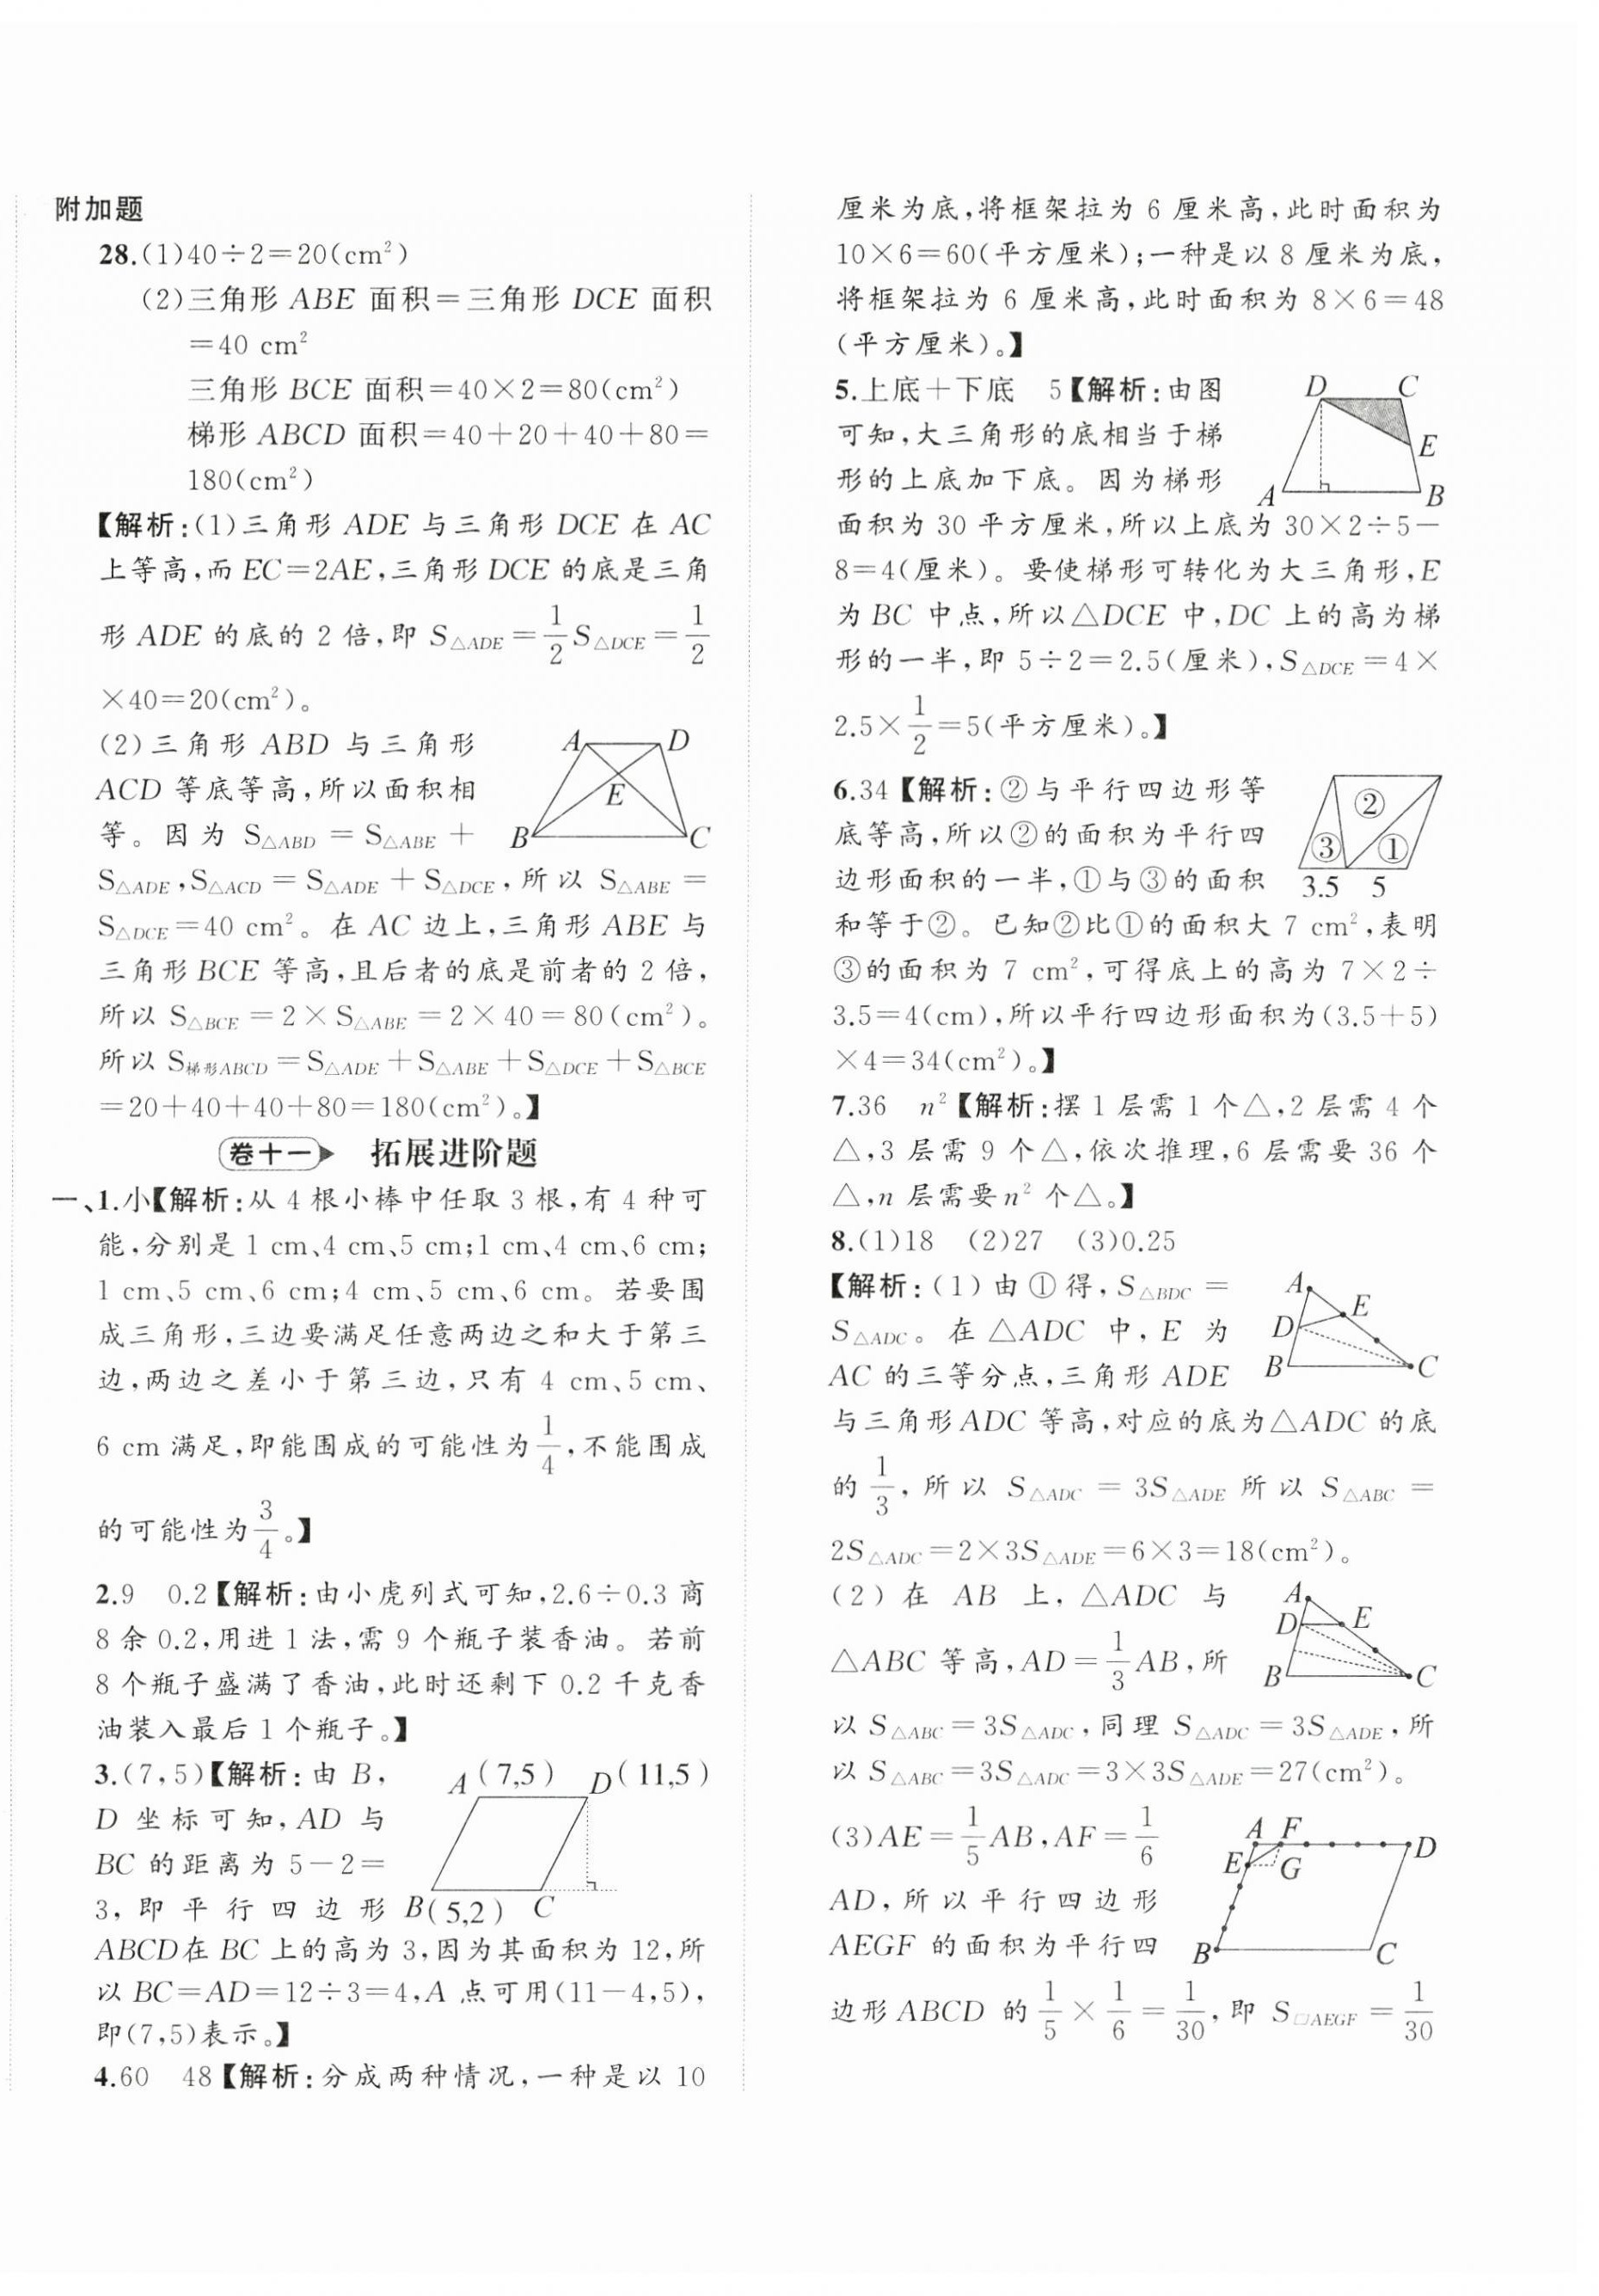 附加题
28.(1)40÷2=20(cm²)
(2)三角形 ABE 面积=三角形 DCE 面积
=40 cm²
三角形 BCE 面积=40×2=80(cm²)
梯形 ABCD 面积=40+20+40+80=
180(cm²)
【解析:(1)三角形 ADE 与三角形 DCE 在 AC
上等高,而 EC=2AE,三角形 DCE 的底是三角
形 ADE 的底的 2 倍,即 S△ADE=1/2S△DCE=1/2
×40=20(cm²)。
(2)三角形 ABD 与三角形
ACD 等底等高,所以面积相
等。因为 S△ABD = S△ABE +
S△ADE,S△ACD = S△ADE + S△DCE,所以 S△ABE =
S△DCE=40 cm²。在 AC 边上,三角形 ABE 与
三角形 BCE 等高,且后者的底是前者的 2 倍,
所以 S△BCE=2×S△ABE=2×40=80(cm²)。
所以 S梯形ABCD=S△ADE+S△ABE+S△DCE+S△BCE
=20+40+40+80=180(cm²)。】
A D
E
B C
卷十一 拓展进阶题
一、1.小【解析:从 4 根小棒中任取 3 根,有 4 种可
能,分别是 1 cm、4 cm、5 cm;1 cm、4 cm、6 cm;
1 cm、5 cm、6 cm;4 cm、5 cm、6 cm。若要围
成三角形,三边要满足任意两边之和大于第三
边,两边之差小于第三边,只有 4 cm、5 cm、
6 cm 满足,即能围成的可能性为1/4,不能围成
的可能性为3/4。】
2.9 0.2【解析:由小虎列式可知,2.6÷0.3 商
8 余 0.2,用进 1 法,需 9 个瓶子装香油。若前
8 个瓶子盛满了香油,此时还剩下 0.2 千克香
油装入最后 1 个瓶子。】
3.(7,5)【解析:由 B,
D 坐标可知,AD 与
BC 的距离为 5-2=
3,即平行四边形
ABCD在 BC 上的高为 3,因为其面积为 12,所
以 BC=AD=12÷3=4,A 点可用(11-4,5),
即(7,5)表示。】
A(7,5) D(11,5)
B(5,2) C
4.60 48【解析:分成两种情况,一种是以 10
厘米为底,将框架拉为 6 厘米高,此时面积为
10×6=60(平方厘米);一种是以 8 厘米为底,
将框架拉为 6 厘米高,此时面积为 8×6=48
(平方厘米)。】
5.上底+下底 5【解析:由图
可知,大三角形的底相当于梯
形的上底加下底。因为梯形
面积为 30 平方厘米,所以上底为 30×2÷5-
8=4(厘米)。要使梯形可转化为大三角形,E
为 BC 中点,所以△DCE 中,DC 上的高为梯
形的一半,即 5÷2=2.5(厘米),S△DCE=4×
2.5×1/2=5(平方厘米)。】
D C
E
A B
6.34【解析:②与平行四边形等
底等高,所以②的面积为平行四
边形面积的一半,①与③的面积
和等于②。已知②比①的面积大 7 cm²,表明
③的面积为 7 cm²,可得底上的高为 7×2÷
3.5=4(cm),所以平行四边形面积为(3.5+5)
×4=34(cm²)。】
②
③ ①
3.5 5
7.36 n²【解析:摆 1 层需 1 个△,2 层需 4 个
△,3 层需 9 个△,依次推理,6 层需要 36 个
△,n 层需要n² 个△。】
8.(1)18 (2)27 (3)0.25
【解析:(1)由①得,S△BDC =
S△ADC。在△ADC 中,E 为
AC 的三等分点,三角形 ADE
与三角形ADC 等高,对应的底为△ADC 的底
的1/3,所以 S△ADC = 3S△ADE 所以 S△ABC =
2S△ADC=2×3S△ADE=6×3=18(cm²)。
A
E
D
B C
(2)在 AB 上,△ADC 与
△ABC 等高,AD=1/3AB,所
以 S△ABC=3S△ADC,同理 S△ADC=3S△ADE,所
以 S△ABC=3S△ADC=3×3S△ADE=27(cm²)。
A
D E
B C
(3)AE=1/5AB,AF=1/6
AD,所以平行四边形
AEGF 的面积为平行四
边形ABCD 的1/5×1/6=1/30,即 S□AEGF=1/30
A F
D
E G
B C